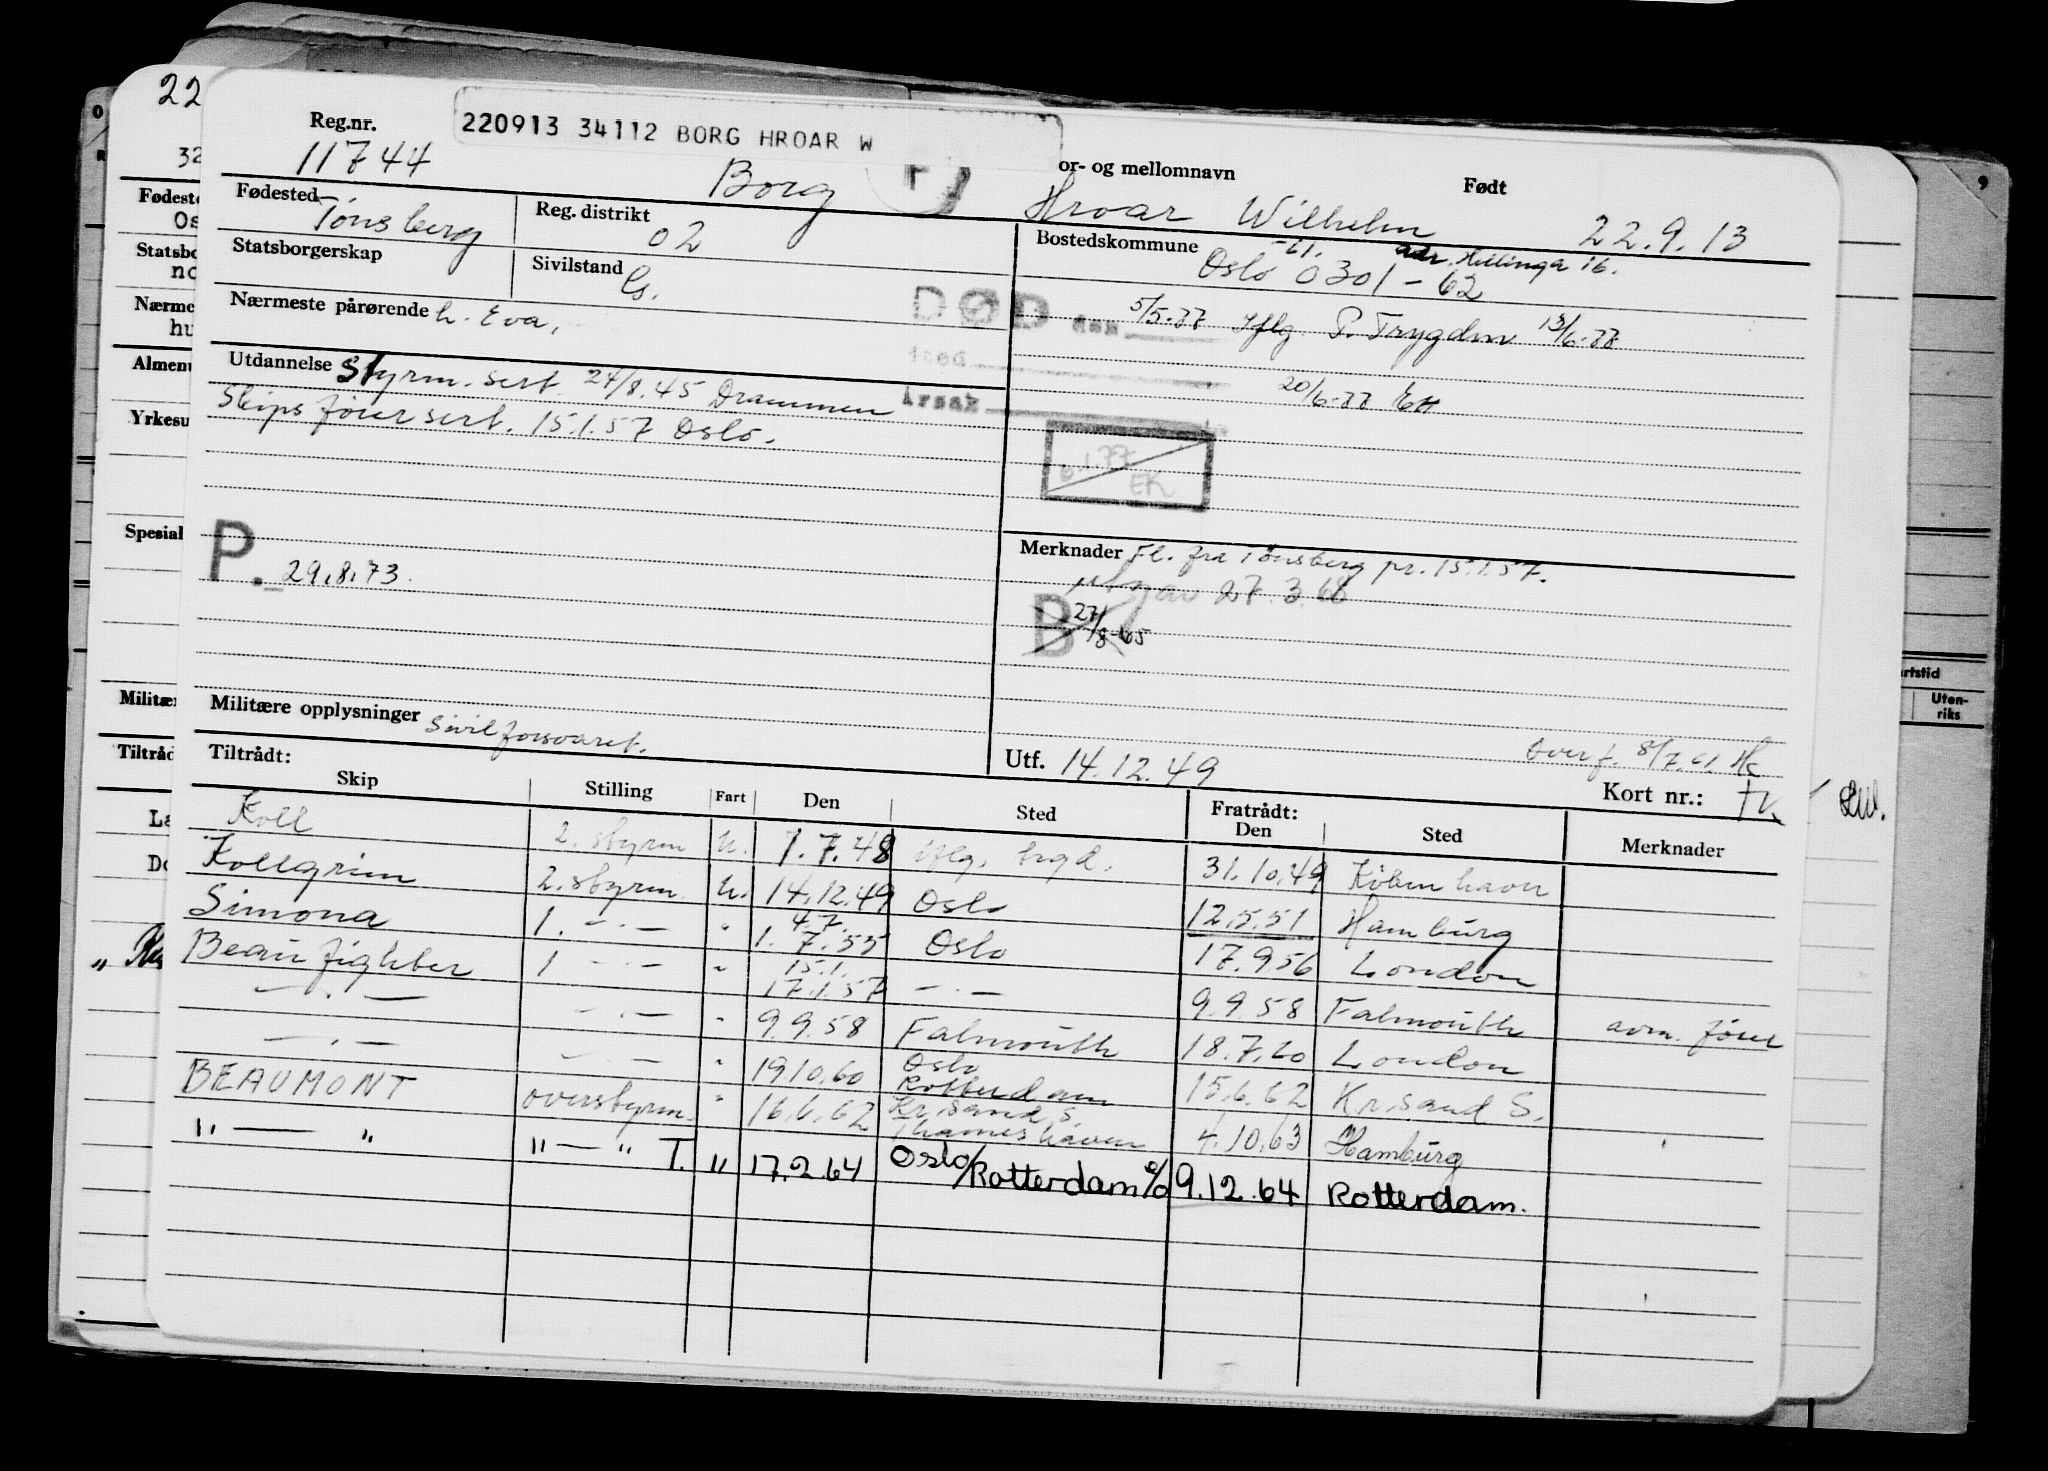 22
Reg.nr. 11744
220913 34112 BORG HROAR W
Borg
or- og mellomnavn Hroar Wilhelm
Født 22.9.13
Fødested Tönsberg
Reg. distrikt 02
Bostedskommune Oslo 0301 - 62
-61. adr. Hellinga 16.
Statsborgerskap
Sivilstand G.
Nærmeste pårørende h. Eva,
DØD den 5/5-77 Iflg. P. Trygden 13/6-77
sted
20/6-77
årsak
Utdannelse Styrm. sert. 24/8.45 Drammen
Skipsförer sert. 15.1.57 Oslo.
6.1.77
EK
P. 29.8.73.
Merknader Fl. fra Tönsberg pr. 15.1.57.
27.3.68
B 27/8-65
Militære opplysninger Sivilforsvaret.
Utf. 14.12.49
Overf. 8/7.61.
Kort nr.:
Tiltrådt:
Skip Stilling Fart Den Sted Fratrådt: Den Sted Merknader
Koll 2. styrm u. 1.7.48 iflg. 31.10.49 Köbenhavn
Kollgrim 2. styrm. u. 14.12.49 Oslo 12.5.51 Hamburg
Simona 1. -"- " 4.7. 1.7.55 Oslo 17.9.56 London
Beaufighter 1 -"- " 15.1. 17.1.57 -"- 9.9.58 Falmouth avm. förer
-"- -"- " 9.9.58 Falmouth 18.7.60 London
-"- -"- " 19.10.60 Oslo Rotterdam 15.6.62 Kr.sand S.
BEAUMONT overstyrm. " 16.6.62 Kr.sand S. Thameshaven 4.10.63 Hamburg
" — " " — " T. " 17.2.64 Oslo/Rotterdam 9.12.64 Rotterdam.
32
Fødeste
Os
Statsbo
no
Nærme
hu
Almen
Yrkesu
Spesial
Militæ
Tiltråd
La
Do
rtstid
Uten-
riks
9